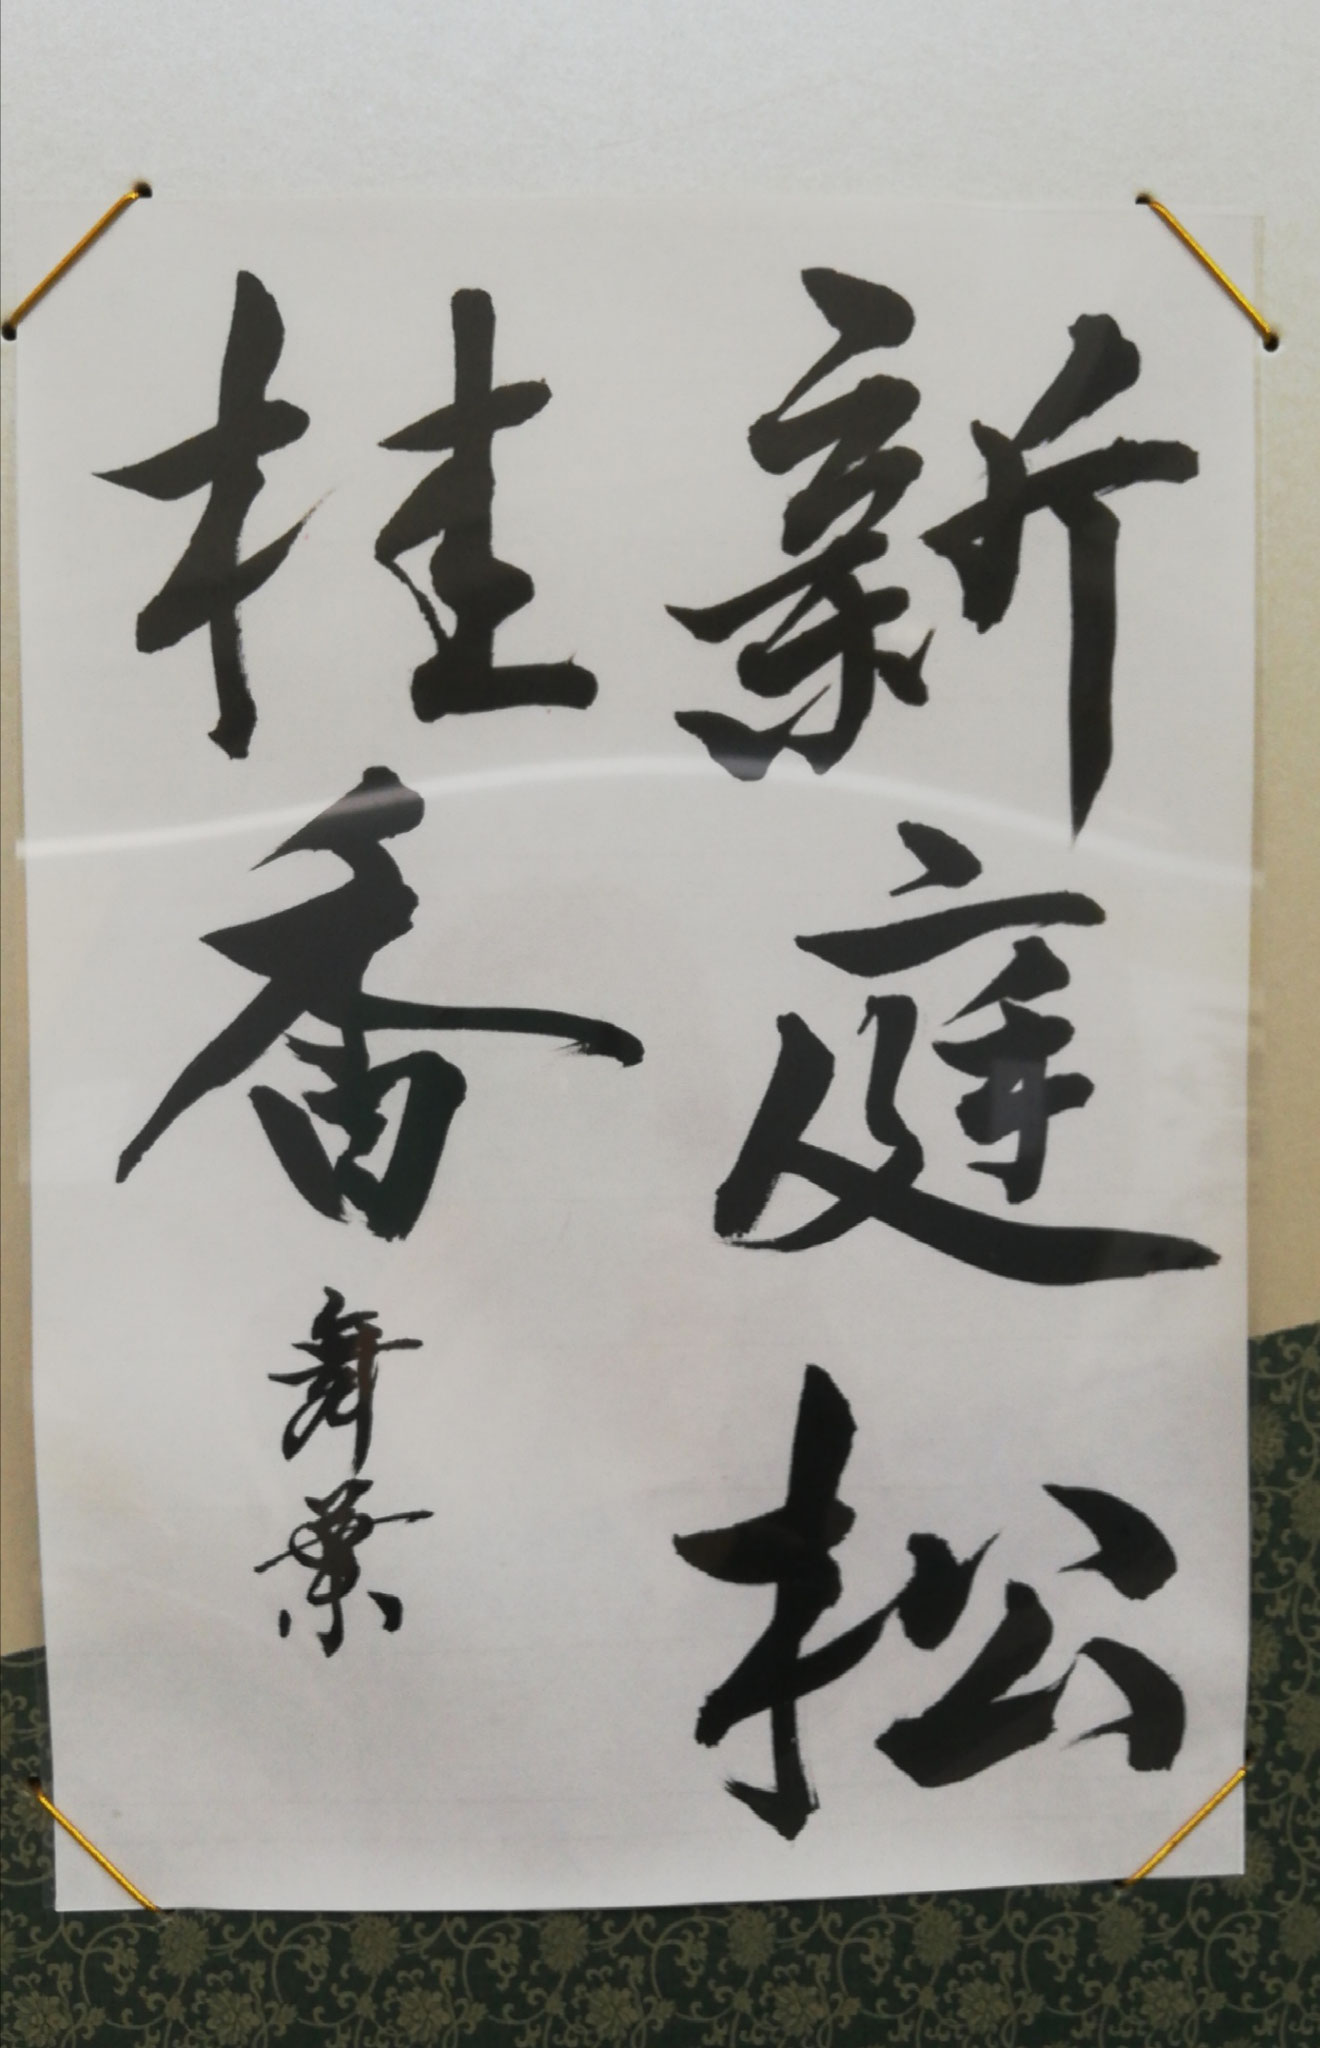 新庭松
桂香 舞葉